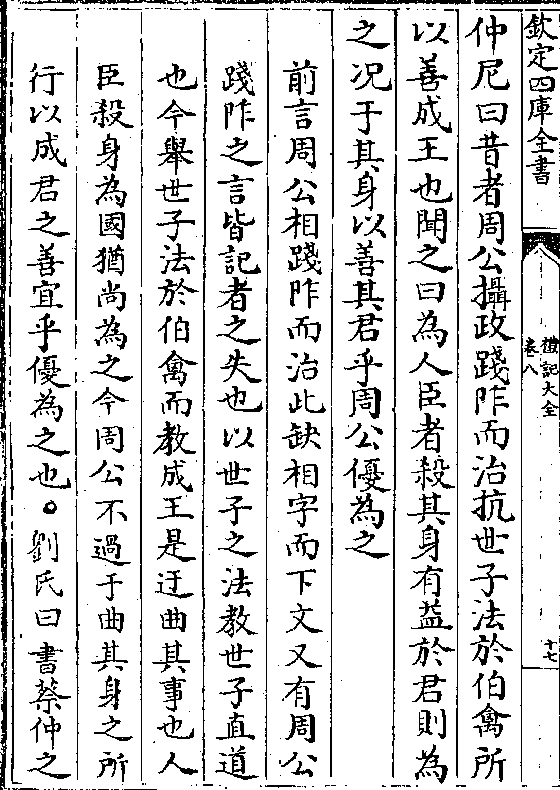 欽定四庫全書
禮記大全
卷八
十七
仲尼曰昔者周公攝政踐阼而治抗世子法於伯禽所
以善成王也聞之曰為人臣者殺其身有益於君則為
之况于其身以善其君乎周公優為之
前言周公相踐阼而治此缺相字而下文又有周公
踐阼之言皆記者之失也以世子之法教世子直道
也今舉世子法於伯禽而教成王是迂曲其事也人
臣殺身為國猶尚為之今周公不過于曲其身之所
行以成君之善宜乎優為之也。劉氏曰書蔡仲之